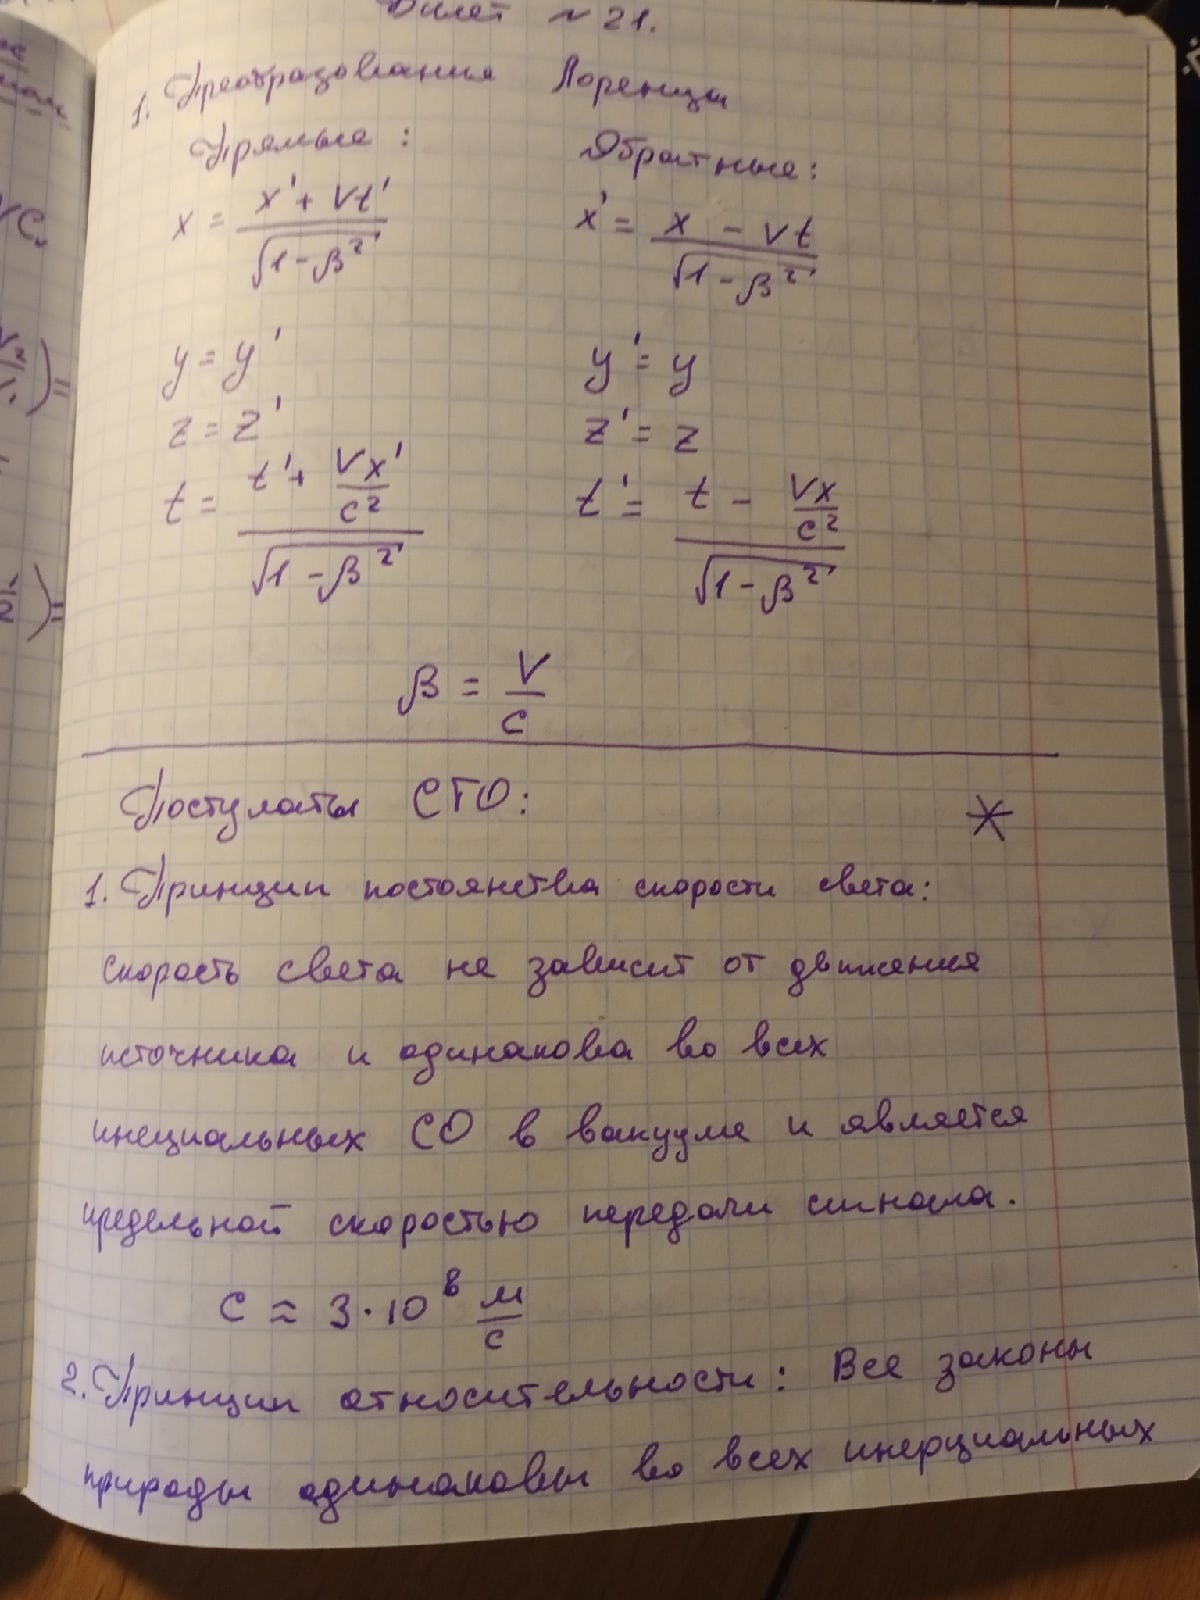 Билет №21.
1. Преобразования Лоренца
Прямые: Обратные:
x = (x' + Vt') / √(1 - β²) x' = (x - Vt) / √(1 - β²)
y = y' y' = y
z = z' z' = z
t = (t' + Vx'/c²) / √(1 - β²) t' = (t - Vx/c²) / √(1 - β²)
β = V/c
Постулаты СТО: *
1. Принцип постоянства скорости света:
скорость света не зависит от движения
источника и одинакова во всех
инециальных СО в вакууме и является
предельной скоростью передачи сигнала.
c ≈ 3·10⁸ м/с
2. Принцип относительности: Все законы
природы одинаковы во всех инерциальных